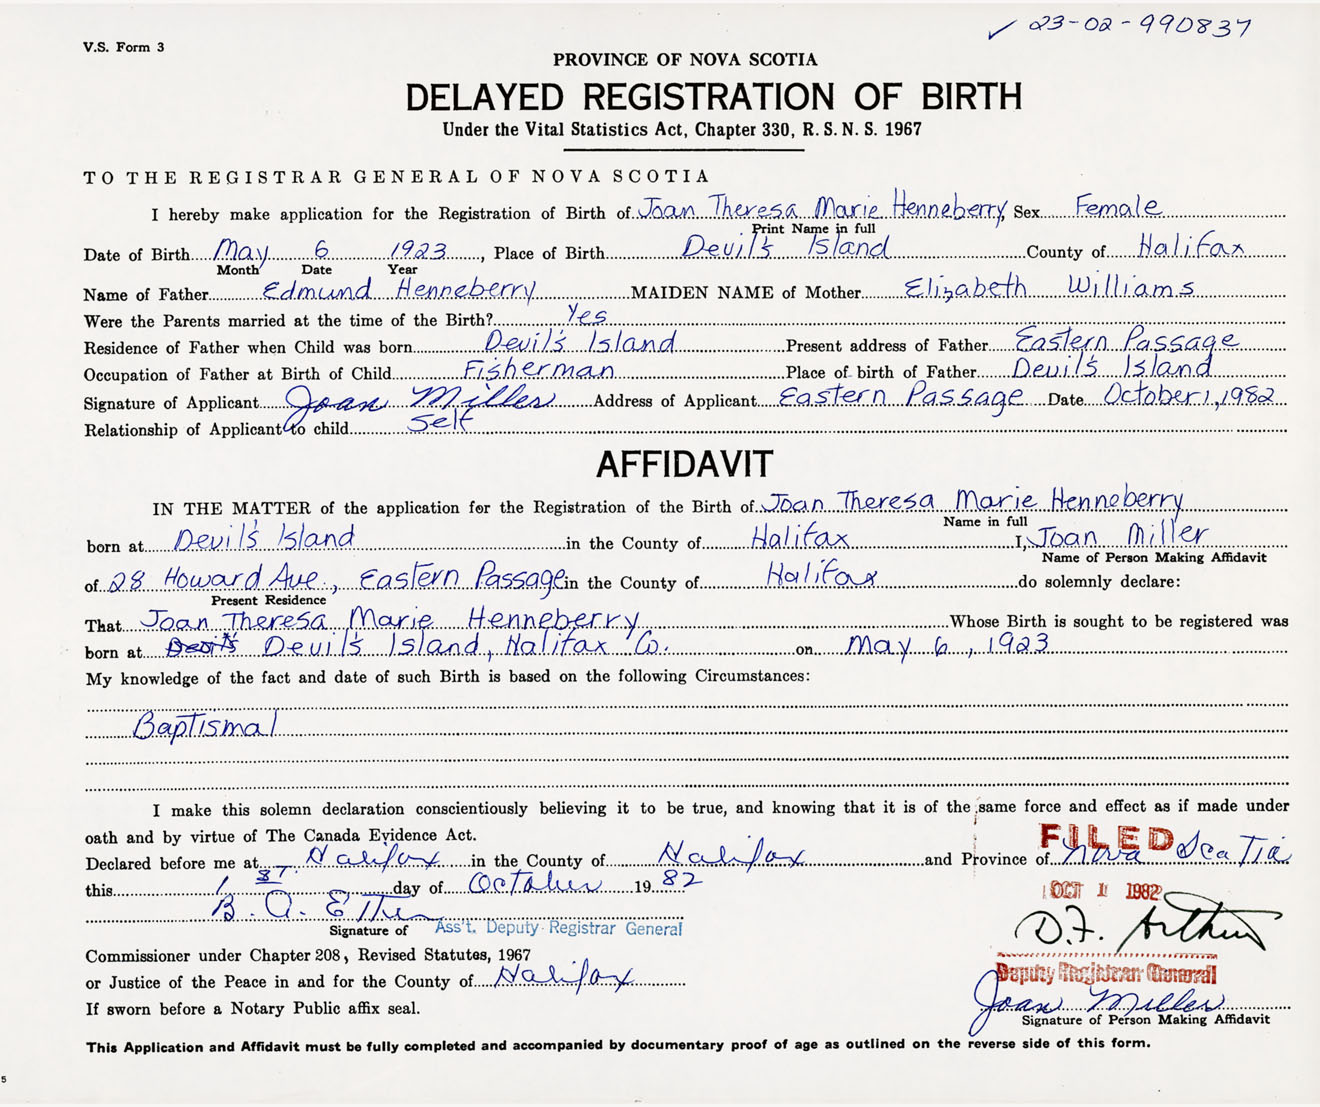 ✓ 23-02-990837
V.S. Form 3
PROVINCE OF NOVA SCOTIA
DELAYED REGISTRATION OF BIRTH
Under the Vital Statistics Act, Chapter 330, R.S.N.S. 1967
TO THE REGISTRAR GENERAL OF NOVA SCOTIA
I hereby make application for the Registration of Birth of Joan Theresa Marie Henneberry, Sex Female
Print Name in full
Date of Birth May 6 1923, Place of Birth Devil's Island County of Halifax
Month Date Year
Name of Father Edmund Henneberry MAIDEN NAME of Mother Elizabeth Williams
Were the Parents married at the time of the Birth? Yes
Residence of Father when Child was born Devil's Island Present address of Father Eastern Passage
Occupation of Father at Birth of Child Fisherman Place of birth of Father Devil's Island
Signature of Applicant Joan Miller Address of Applicant Eastern Passage Date October 1, 1982
Relationship of Applicant to child self
AFFIDAVIT
IN THE MATTER of the application for the Registration of the Birth of Joan Theresa Marie Henneberry
Name in full
born at Devil's Island in the County of Halifax I, Joan Miller
Name of Person Making Affidavit
of 28 Howard Ave., Eastern Passage in the County of Halifax do solemnly declare:
Present Residence
That Joan Theresa Marie Henneberry Whose Birth is sought to be registered was
born at Devil's Island, Halifax Co. on May 6, 1923
My knowledge of the fact and date of such Birth is based on the following Circumstances:
Baptismal
I make this solemn declaration conscientiously believing it to be true, and knowing that it is of the same force and effect as if made under
oath and by virtue of The Canada Evidence Act.
FILED
Declared before me at Halifax in the County of Halifax and Province of Nova Scotia
this 1st day of October 1982
OCT 1 1982
B. A.
D.F. Arthur
Signature of Ass't. Deputy Registrar General
Commissioner under Chapter 208, Revised Statutes, 1967
Deputy Registrar General
or Justice of the Peace in and for the County of Halifax
Joan Miller
If sworn before a Notary Public affix seal.
Signature of Person Making Affidavit
This Application and Affidavit must be fully completed and accompanied by documentary proof of age as outlined on the reverse side of this form.
5